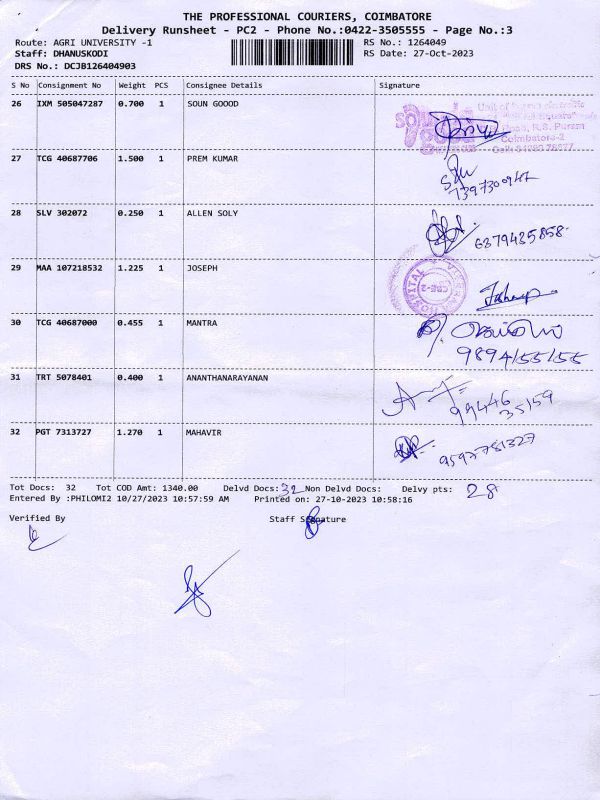 THE PROFESSIONAL COURIERS, COIMBATORE
Delivery Runsheet - PC2 - Phone No.:0422-3505555 - Page No.:3
Route: AGRI UNIVERSITY -1 RS No.: 1264049
Staff: DHANUSKODI RS Date: 27-Oct-2023
DRS No.: DCJB126404903
S No Consignment No Weight PCS Consignee Details Signature
26 IXM 505047287 0.700 1 SOUN GOOOD
R.S. Puram
Coimbatore-2
27 TCG 40687706 1.500 1 PREM KUMAR
7397300947
28 SLV 302072 0.250 1 ALLEN SOLY 6379435858
29 MAA 107218532 1.225 1 JOSEPH
HOSPITAL CBE-2
30 TCG 40687000 0.455 1 MANTRA
9894155155
31 TRT 5078401 0.400 1 ANANTHANARAYANAN
99446
35159
32 PGT 7313727 1.270 1 MAHAVIR
Tot Docs: 32 Tot COD Amt: 1340.00 Delvd Docs: 32 Non Delvd Docs: Delvy pts: 28
Entered By :PHILOMI2 10/27/2023 10:57:59 AM Printed on: 27-10-2023 10:58:16
Verified By Staff Signature